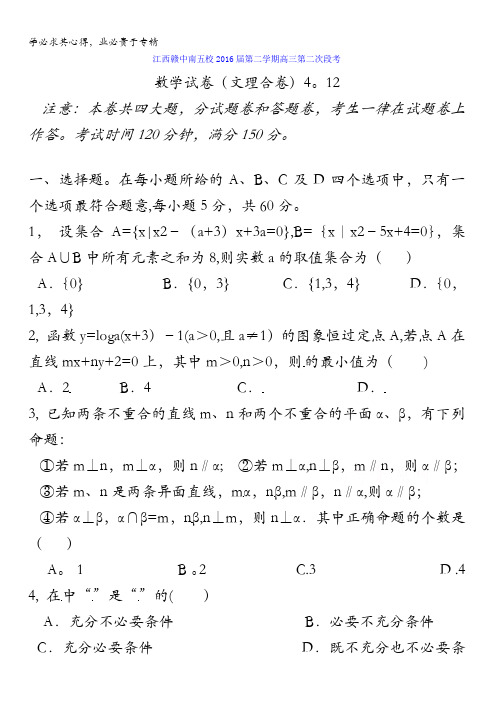 学必求其心得，业必贵于专精
江西赣中南五校2016届第二学期高三第二次段考
数学试卷（文理合卷）4。12
注意：本卷共四大题，分试题卷和答题卷，考生一律在试题卷上
作答。考试时间120分钟，满分150分。
一、选择题。在每小题所给的A、B、C及D四个选项中，只有一
个选项最符合题意,每小题5分，共60分。
1， 设集合A={x|x2﹣（a+3）x+3a=0},B=｛x｜x2﹣5x+4=0｝，集
合A∪B中所有元素之和为8,则实数a的取值集合为（ ）
A．{0} B．{0，3} C．{1,3，4} D．{0，
1,3，4}
2, 函数y=loga(x+3）﹣1(a＞0,且a≠1）的图象恒过定点A,若点A在
直线mx+ny+2=0上，其中m＞0,n＞0，则的最小值为（ ）
A．2 B．4 C． D．
3, 已知两条不重合的直线m、n和两个不重合的平面α、β，有下列
命题：
①若m⊥n，m⊥α，则n∥α; ②若m⊥α,n⊥β，m∥n，则α∥β；
③若m、n是两条异面直线，mα，nβ,m∥β，n∥α,则α∥β；
④若α⊥β，α∩β=m，nβ,n⊥m，则n⊥α．其中正确命题的个数是
（ ）
A。 1 B 。2 C.3 D .4
4, 在中“”是“”的( ）
A．充分不必要条件 B．必要不充分条件
C．充分必要条件 D．既不充分也不必要条